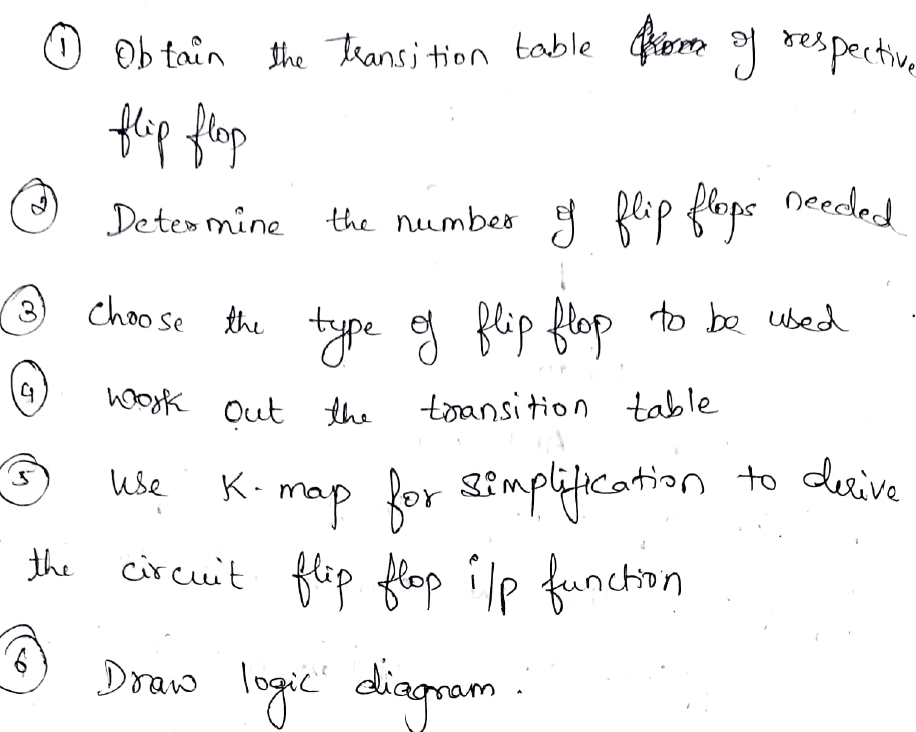 ① Obtain the transition table of respective
flip flop
② Determine the number of flip flops needed
③ choose the type of flip flop to be used
④ work out the transition table
⑤ use K-map for simplification to derive
the circuit flip flop i/p function
⑥ Draw logic diagram.